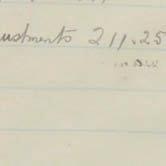 ustments 211.25